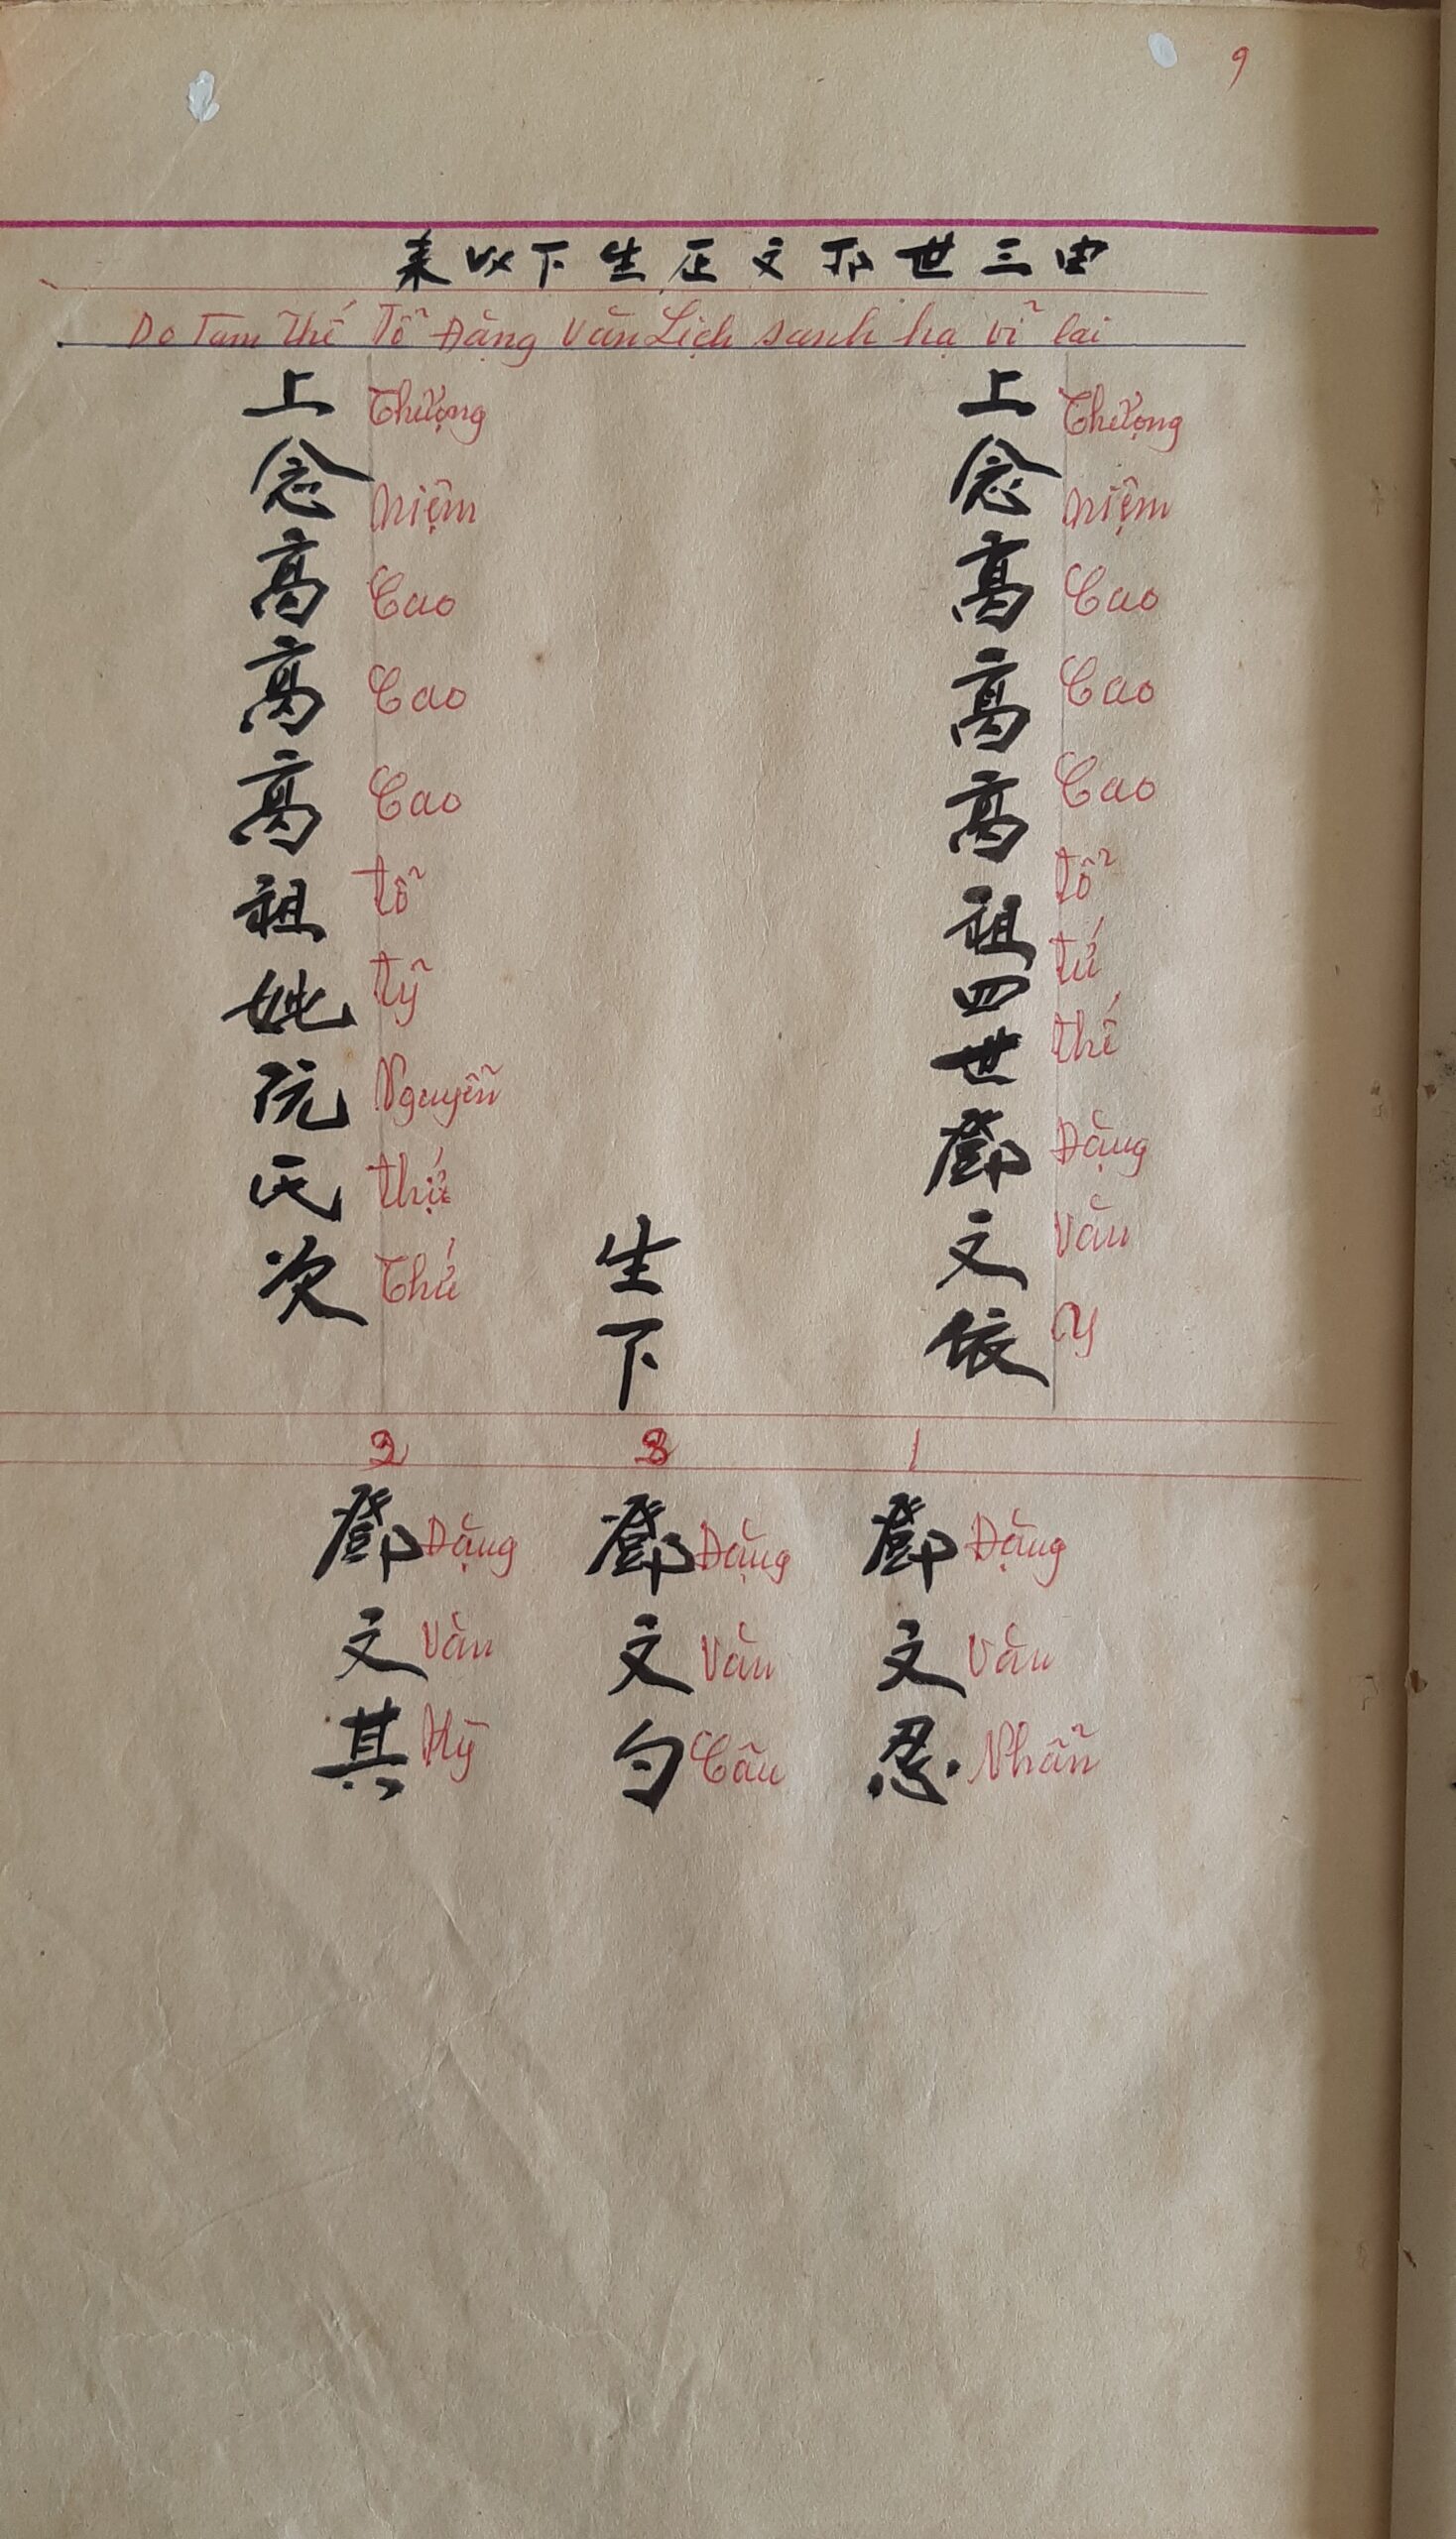 9
由三世邓文正生下以来
Do Tam Thế Tổ Đặng Văn Lịch sanh hạ vĩ lai
上念髙髙髙祖四世鄧文依
Thượng Niệm Cao Cao Cao tổ tứ thế Đặng Văn Y
生下
上念髙髙髙祖妣阮氏次
Thượng Niệm Cao Cao Cao tổ tỹ Nguyễn thị Thứ
1
鄧文忍
Đặng Văn Nhẫn
3
鄧文勺
Đặng Văn
2
鄧文其
Đặng Văn Kỳ